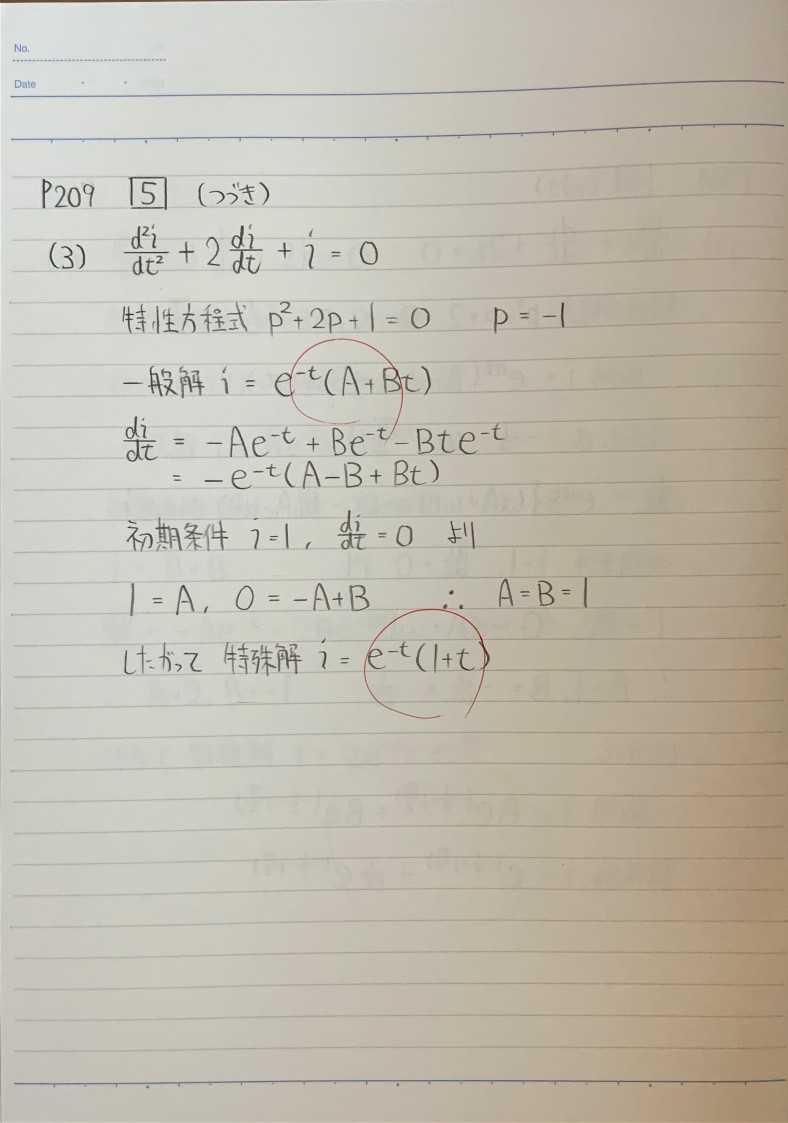 No.
Date
P209 5 (つづき)
(3) d²i/dt² + 2 di/dt + i = 0
特性方程式 p²+2p+1=0 p=-1
一般解 i = e^-t(A+Bt)
di/dt = -Ae^-t + Be^-t - Bte^-t
= -e^-t(A-B+Bt)
初期条件 i=1, di/dt=0 より
1=A, 0=-A+B ∴ A=B=1
したがって 特殊解 i = e^-t(1+t)